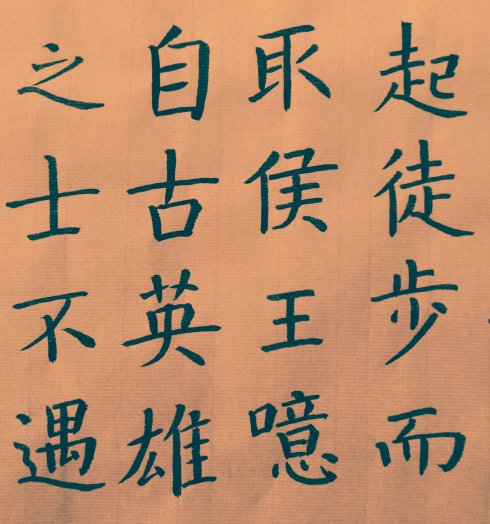 起徒步而
取侯王噫
自古英雄
之士不遇